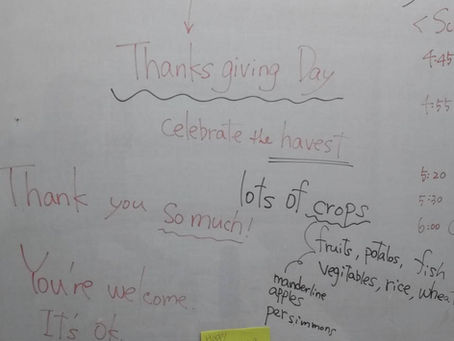 Thanksgiving Day
celebrate the havest
Thank you so much!
You're welcome.
It's ok.
lots of crops
fruits, potatos, fish
vegitables, rice, wheat
manderline
apples
persimmons
<Su
4:45
4:55
5:20
5:30
6:00